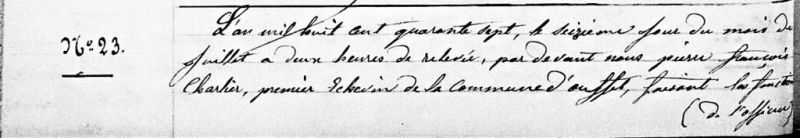 L'an mil huit cent quarante sept, le seizième jour du mois de
N° 23.
juillet a deux heures de relevée, par devant nous pierre françois
Charlier, premier Echevin de la Commune d'ouffet, faisant les fonctions
(de l'officier)